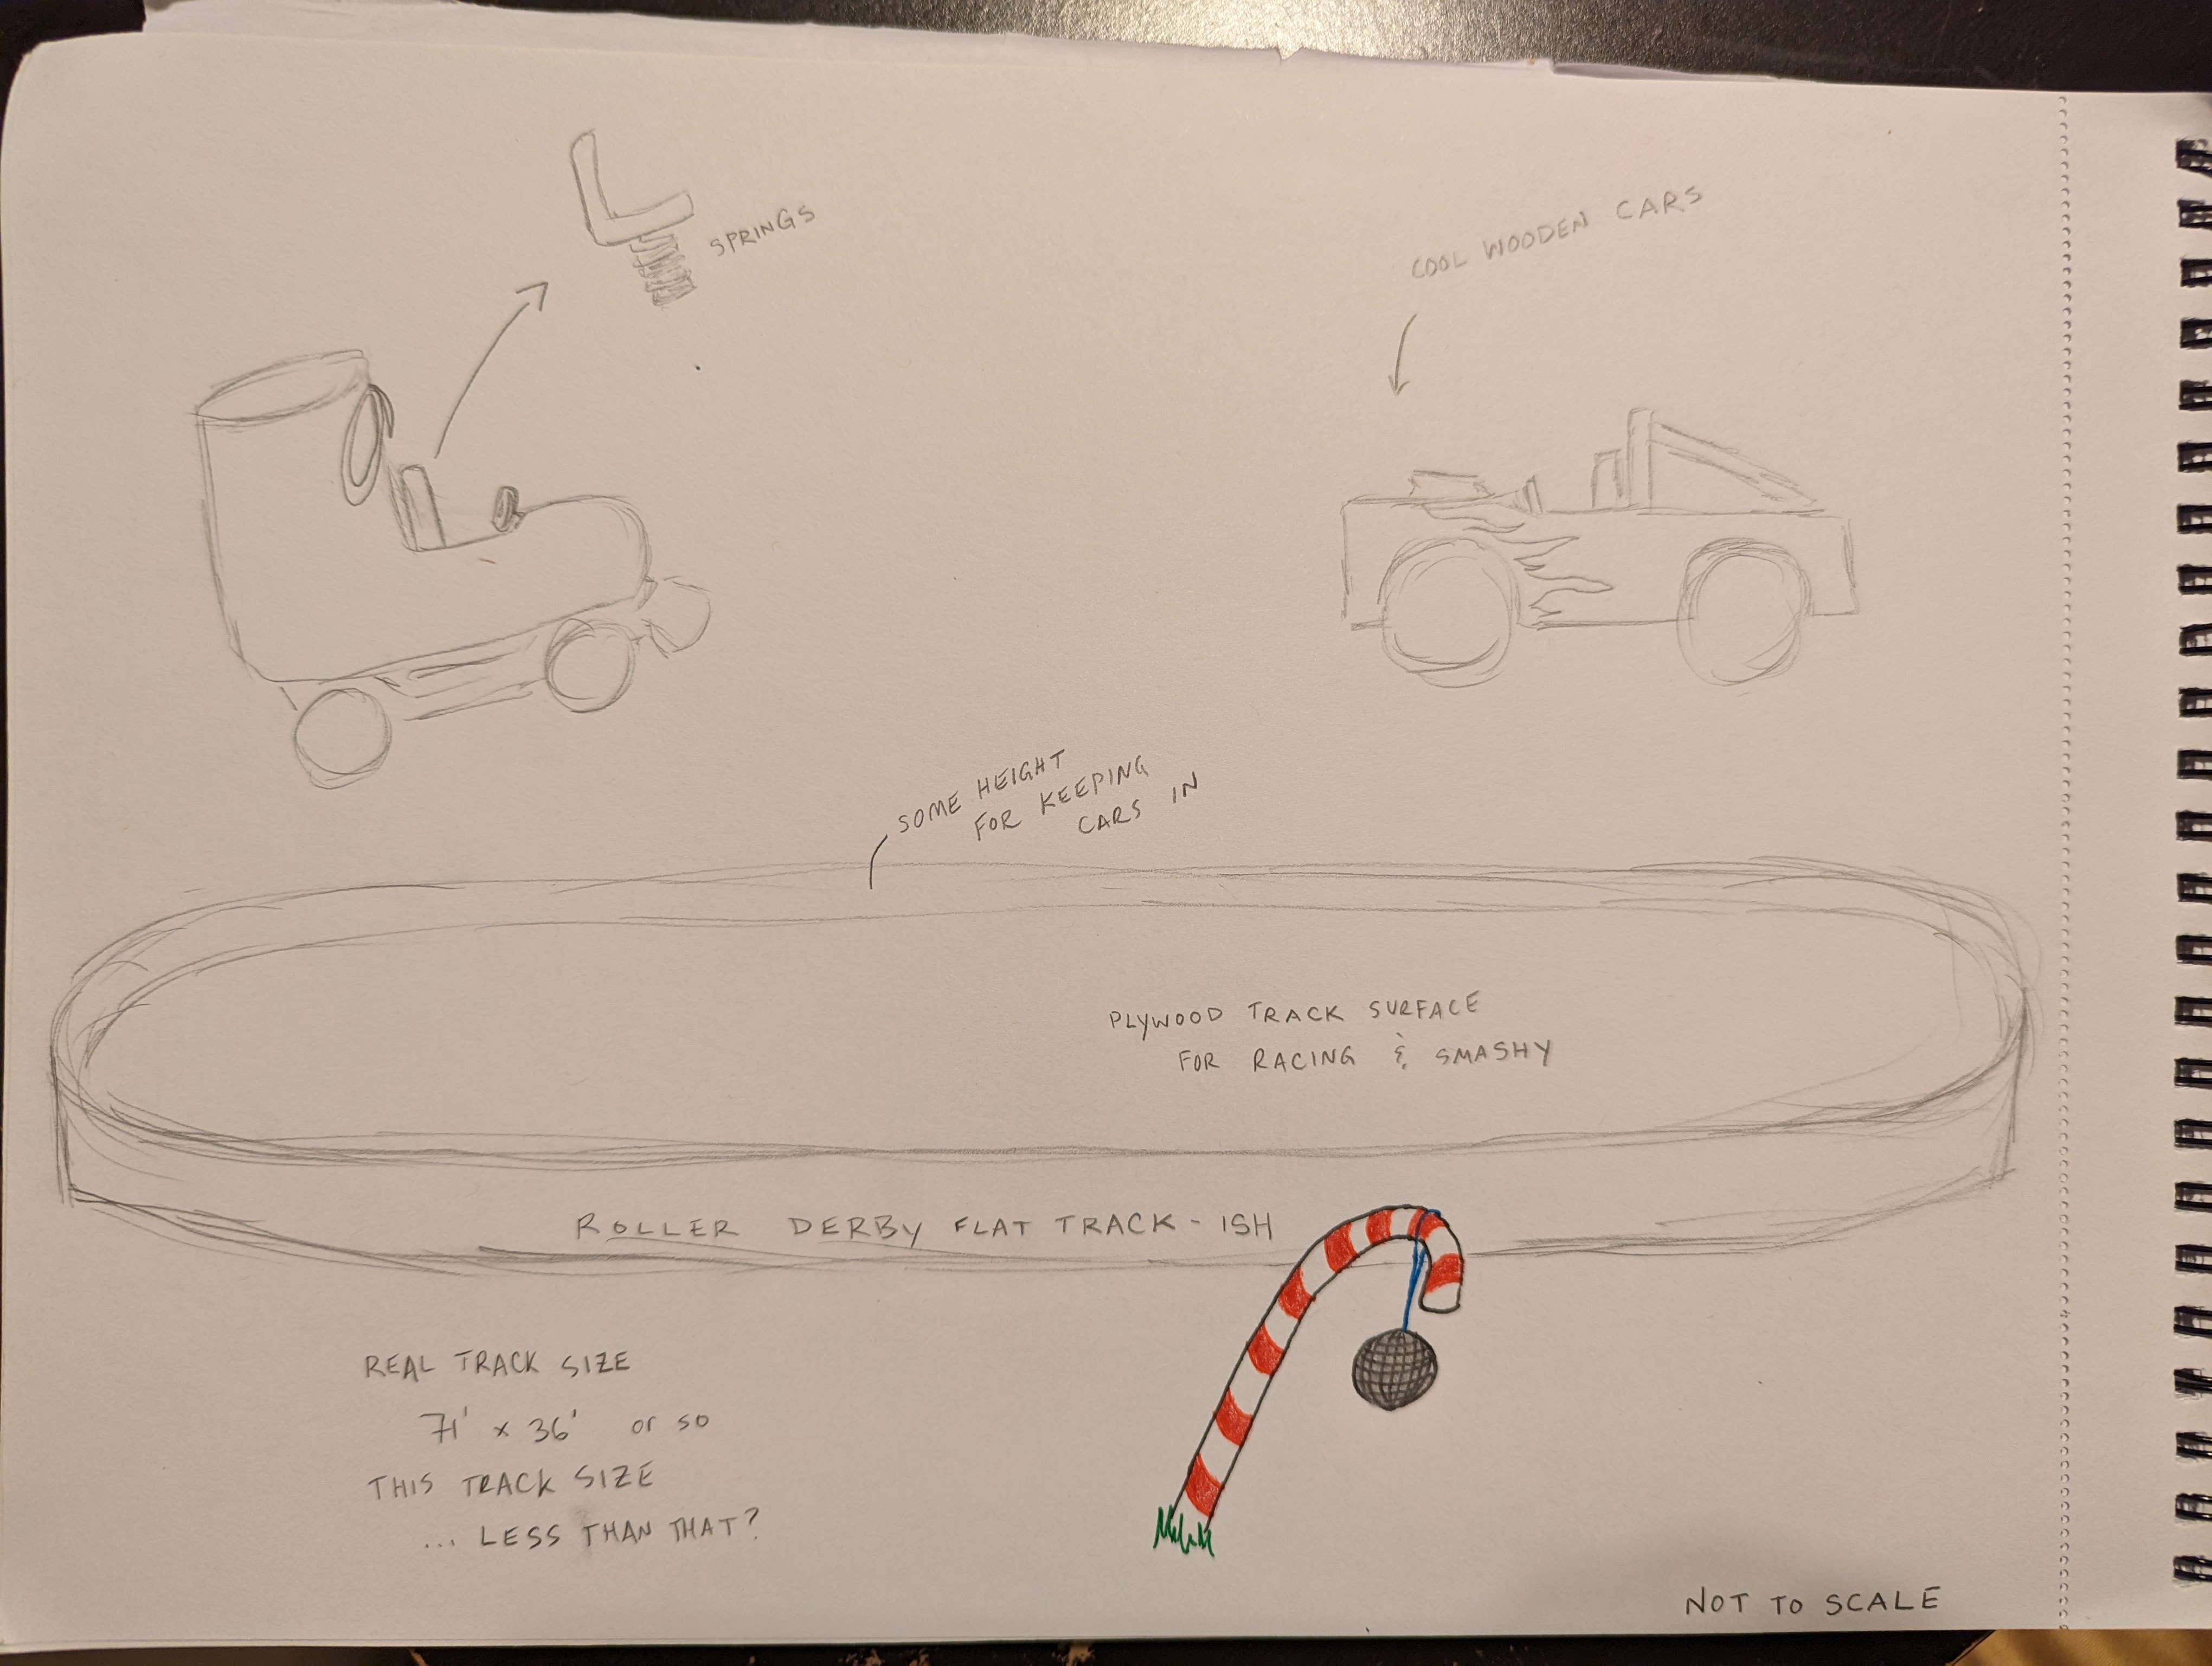 SPRINGS
COOL WOODEN CARS
SOME HEIGHT
FOR KEEPING
CARS IN
PLYWOOD TRACK SURFACE
FOR RACING & SMASHY
ROLLER DERBY FLAT TRACK-ISH
REAL TRACK SIZE
71' x 36' or so
THIS TRACK SIZE
... LESS THAN THAT?
NOT TO SCALE